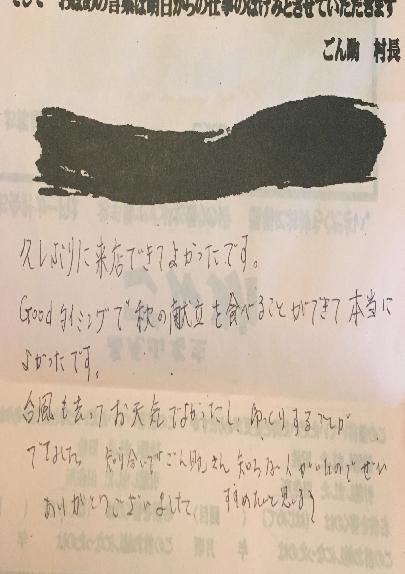 そして おほめの言葉は明日からの仕事のはげみとさせていただきます
ごん助 村長
久しぶりに来店できてよかったです。
Goodタイミングで秋の献立を食べることができて本当に
よかったです。
台風も去ってお天気でよかったし、ゆっくりすることが
できました 知り合いで「ごん助」さん知らない人がいるのでぜひ
ありがとうございました すすめたいと思う